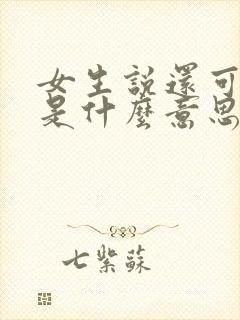 女生說還可
是什麼意思
七紫蘇